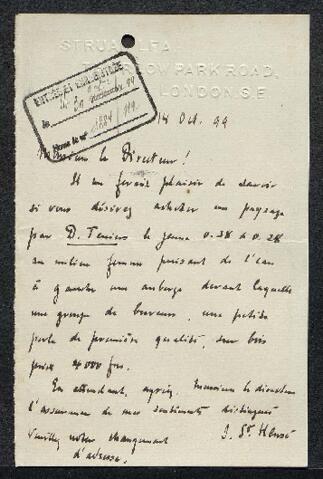 STRUA
PARK ROAD,
LONDON. S.E.
ENTRÉE ET ENREGISTRÉE
le
Sous le no
14 Oct. 99
Monsieur le Directeur!
Il me ferait plaisir de savoir
si vous désirez acheter un paysage
par D. Teniers le jeune 0.38 à 0.28
au milieu femme puisant de l'eau
à gauche une auberge devant laquelle
une groupe de buveurs, une petite
perle de première qualité, sur bois
prix 4000 frs.
En attendant, agréez Monsieur le directeur
l'assurance de mes sentiments distingués
Veuillez noter changement
d'adresse.